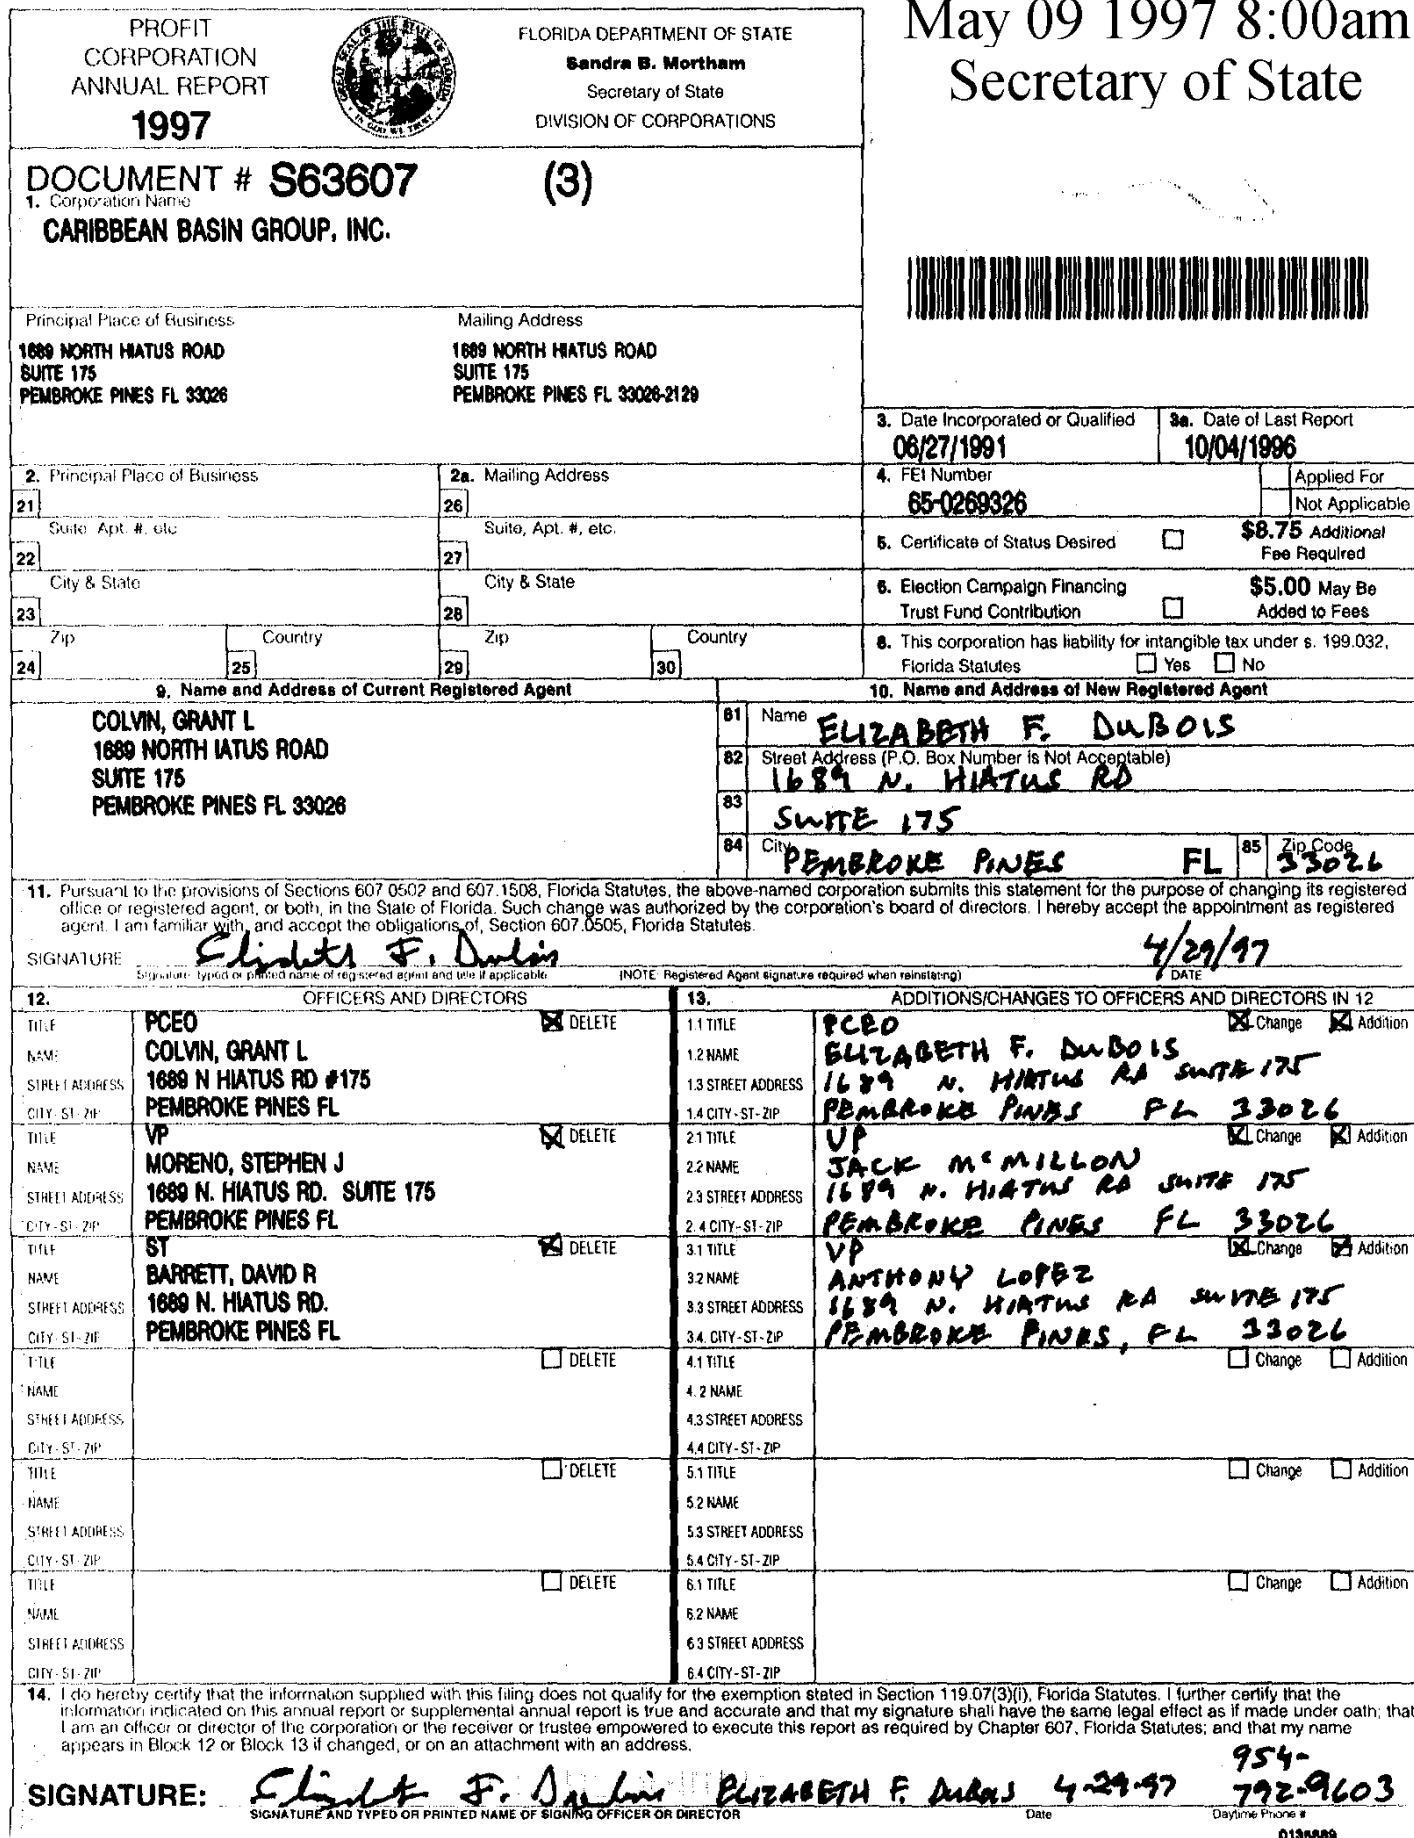 PROFIT
CORPORATION
ANNUAL REPORT
1997
FLORIDA DEPARTMENT OF STATE
Sandra B. Mortham
Secretary of State
DIVISION OF CORPORATIONS
May 09 1997 8:00am
Secretary of State
DOCUMENT # S63607 (3)
1. Corporation Name
CARIBBEAN BASIN GROUP, INC.
Principal Place of Business
1689 NORTH HIATUS ROAD
SUITE 175
PEMBROKE PINES FL 33026
Mailing Address
1689 NORTH HIATUS ROAD
SUITE 175
PEMBROKE PINES FL 33026-2129
3. Date Incorporated or Qualified
06/27/1991
3a. Date of Last Report
10/04/1996
2. Principal Place of Business
21
2a. Mailing Address
26
4. FEI Number
65-0269326
Applied For
Not Applicable
Suite, Apt. #, etc
22
Suite, Apt. #, etc.
27
5. Certificate of Status Desired
$8.75 Additional
Fee Required
City & State
23
City & State
28
6. Election Campaign Financing
Trust Fund Contribution
$5.00 May Be
Added to Fees
Zip
24
Country
25
Zip
29
Country
30
8. This corporation has liability for intangible tax under s. 199.032,
Florida Statutes Yes No
9. Name and Address of Current Registered Agent
COLVIN, GRANT L
1689 NORTH IATUS ROAD
SUITE 175
PEMBROKE PINES FL 33026
10. Name and Address of New Registered Agent
81 Name ELIZABETH F. DUBOIS
82 Street Address (P.O. Box Number is Not Acceptable)
1689 N. HIATUS RD
83
SUITE 175
84 City PEMBROKE PINES FL 85 Zip Code 33026
11. Pursuant to the provisions of Sections 607.0502 and 607.1508, Florida Statutes, the above-named corporation submits this statement for the purpose of changing its registered
office or registered agent, or both, in the State of Florida. Such change was authorized by the corporation's board of directors. I hereby accept the appointment as registered
agent. I am familiar with, and accept the obligations of, Section 607.0505, Florida Statutes.
SIGNATURE Elizabeth F. Dubois 4/29/97
Signature, typed or printed name of registered agent and title if applicable. (NOTE: Registered Agent signature required when reinstating) DATE
12. OFFICERS AND DIRECTORS
TITLE PCEO DELETE
NAME COLVIN, GRANT L
STREET ADDRESS 1689 N HIATUS RD #175
CITY-ST-ZIP PEMBROKE PINES FL
TITLE VP DELETE
NAME MORENO, STEPHEN J
STREET ADDRESS 1689 N. HIATUS RD. SUITE 175
CITY-ST-ZIP PEMBROKE PINES FL
TITLE ST DELETE
NAME BARRETT, DAVID R
STREET ADDRESS 1689 N. HIATUS RD.
CITY-ST-ZIP PEMBROKE PINES FL
TITLE DELETE
NAME
STREET ADDRESS
CITY-ST-ZIP
TITLE DELETE
NAME
STREET ADDRESS
CITY-ST-ZIP
TITLE DELETE
NAME
STREET ADDRESS
CITY-ST-ZIP
13. ADDITIONS/CHANGES TO OFFICERS AND DIRECTORS IN 12
1.1 TITLE PCEO Change Addition
1.2 NAME ELIZABETH F. DUBOIS
1.3 STREET ADDRESS 1689 N. HIATUS RD SUITE 175
1.4 CITY-ST-ZIP PEMBROKE PINES FL 33026
2.1 TITLE VP Change Addition
2.2 NAME JACK McMILLON
2.3 STREET ADDRESS 1689 N. HIATUS RD SUITE 175
2.4 CITY-ST-ZIP PEMBROKE PINES FL 33026
3.1 TITLE VP Change Addition
3.2 NAME ANTHONY LOPEZ
3.3 STREET ADDRESS 1689 N. HIATUS RD SUITE 175
3.4. CITY-ST-ZIP PEMBROKE PINES, FL 33026
4.1 TITLE Change Addition
4.2 NAME
4.3 STREET ADDRESS
4.4 CITY-ST-ZIP
5.1 TITLE Change Addition
5.2 NAME
5.3 STREET ADDRESS
5.4 CITY-ST-ZIP
6.1 TITLE Change Addition
6.2 NAME
6.3 STREET ADDRESS
6.4 CITY-ST-ZIP
14. I do hereby certify that the information supplied with this filing does not qualify for the exemption stated in Section 119.07(3)(i), Florida Statutes. I further certify that the
information indicated on this annual report or supplemental annual report is true and accurate and that my signature shall have the same legal effect as if made under oath; that
I am an officer or director of the corporation or the receiver or trustee empowered to execute this report as required by Chapter 607, Florida Statutes; and that my name
appears in Block 12 or Block 13 if changed, or on an attachment with an address.
SIGNATURE: Elizabeth F. Dubois ELIZABETH F. DUBOIS 4-29-97 954-792-9603
SIGNATURE AND TYPED OR PRINTED NAME OF SIGNING OFFICER OR DIRECTOR Date Daytime Phone #